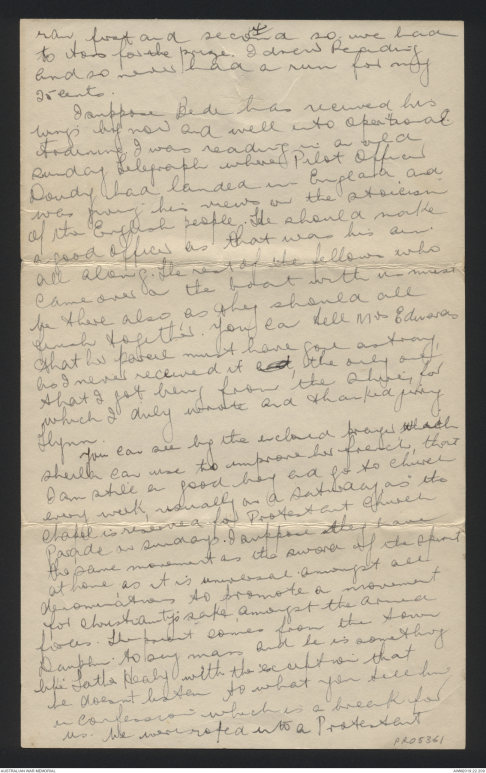 ran first and second so we had
to toss for the prize. I drew Reading
and so never had a run for my
25 cents.
I suppose Dede has received his
wings by now and well into operational
training. I was reading in an old
Sunday Telegraph where Pilot Officer
Doudy had landed in England and
was giving his views on the stoicism
of the English people. He should make
a good officer as that was his aim
all along. The rest of the fellows who
came over on the boat with us must
be there also as they should all
finish together. You can tell Mrs Edwards
that her parcel must have gone astray,
as I never received it, the only one
that I got being from the Shire, for
which I duly wrote and thanked Jimmy
Flynn.
You can see by the enclosed prayer which
Sheila can use to improve her french, that
I am still a good boy and go to church
every week, usually on a Saturday as the
chapel is reserved for Protestant Church
Parade on Sundays. I suppose they have
the same movement as the sword of the spirit
at home as it is universal amongst all
denominations to promote a movement
for Christianity's sake amongst the armed
forces. The priest comes from the town
Dauphin to say mass and he is something
like Father Healy with the exception that
he doesn't listen to what you tell him
in confession which is a break for
us. We were roped into a Protestant
PR05361
AUSTRALIAN WAR MEMORIAL